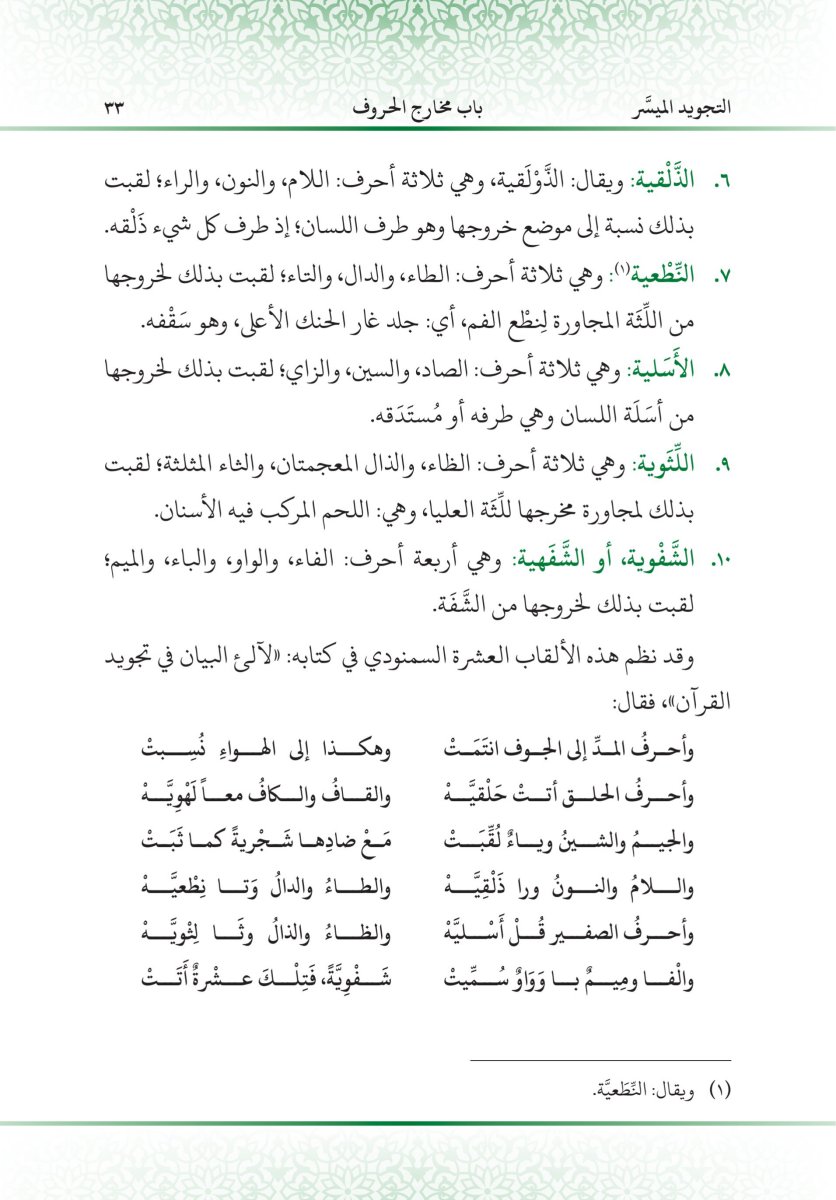 التجويد الميسَّر باب مخارج الحروف ٣٣
٦. الذَّلْقية: ويقال: الذَّوْلَقية، وهي ثلاثة أحرف: اللام، والنون، والراء؛ لقبت
بذلك نسبة إلى موضع خروجها وهو طرف اللسان؛ إذ طرف كل شيء ذَلْقه.
٧. النِّطْعية(١): وهي ثلاثة أحرف: الطاء، والدال، والتاء؛ لقبت بذلك لخروجها
من اللِّثَة المجاورة لِنطْع الفم، أي: جلد غار الحنك الأعلى، وهو سَقْفه.
٨. الأَسَلية: وهي ثلاثة أحرف: الصاد، والسين، والزاي؛ لقبت بذلك لخروجها
من أسَلَة اللسان وهي طرفه أو مُستَدَقه.
٩. اللِّثَوية: وهي ثلاثة أحرف: الظاء، والذال المعجمتان، والثاء المثلثة؛ لقبت
بذلك لمجاورة مخرجها للِّثَة العليا، وهي: اللحم المركب فيه الأسنان.
١٠. الشَّفْوية، أو الشَّفَهية: وهي أربعة أحرف: الفاء، والواو، والباء، والميم؛
لقبت بذلك لخروجها من الشَّفَة.
وقد نظم هذه الألقاب العشرة السمنودي في كتابه: «لآلئ البيان في تجويد
القرآن»، فقال:
وأحرفُ المدِّ إلى الجوف انتَمَتْ وهكذا إلى الهواءِ نُسِبتْ
وأحرفُ الحلق أتتْ حَلْقيَّهْ والقافُ والكافُ معاً لَهْوِيَّهْ
والجيمُ والشينُ وياءٌ لُقِّبَتْ مَعْ ضادِها شَجْريةً كما ثَبَتْ
واللامُ والنونُ ورا ذَلْقِيَّهْ والطاءُ والدالُ وَتا نِطْعيَّهْ
وأحرفُ الصفير قُلْ أَسْليَّهْ والظاءُ والذالُ وثَا لِثْويَّهْ
والْفا ومِيمٌ با وَوَاوٌ سُمِّيتْ شَفْوِيَّةً، فَتِلْكَ عشْرةٌ أَتَتْ
(١) ويقال: النِّطَعيَّة.